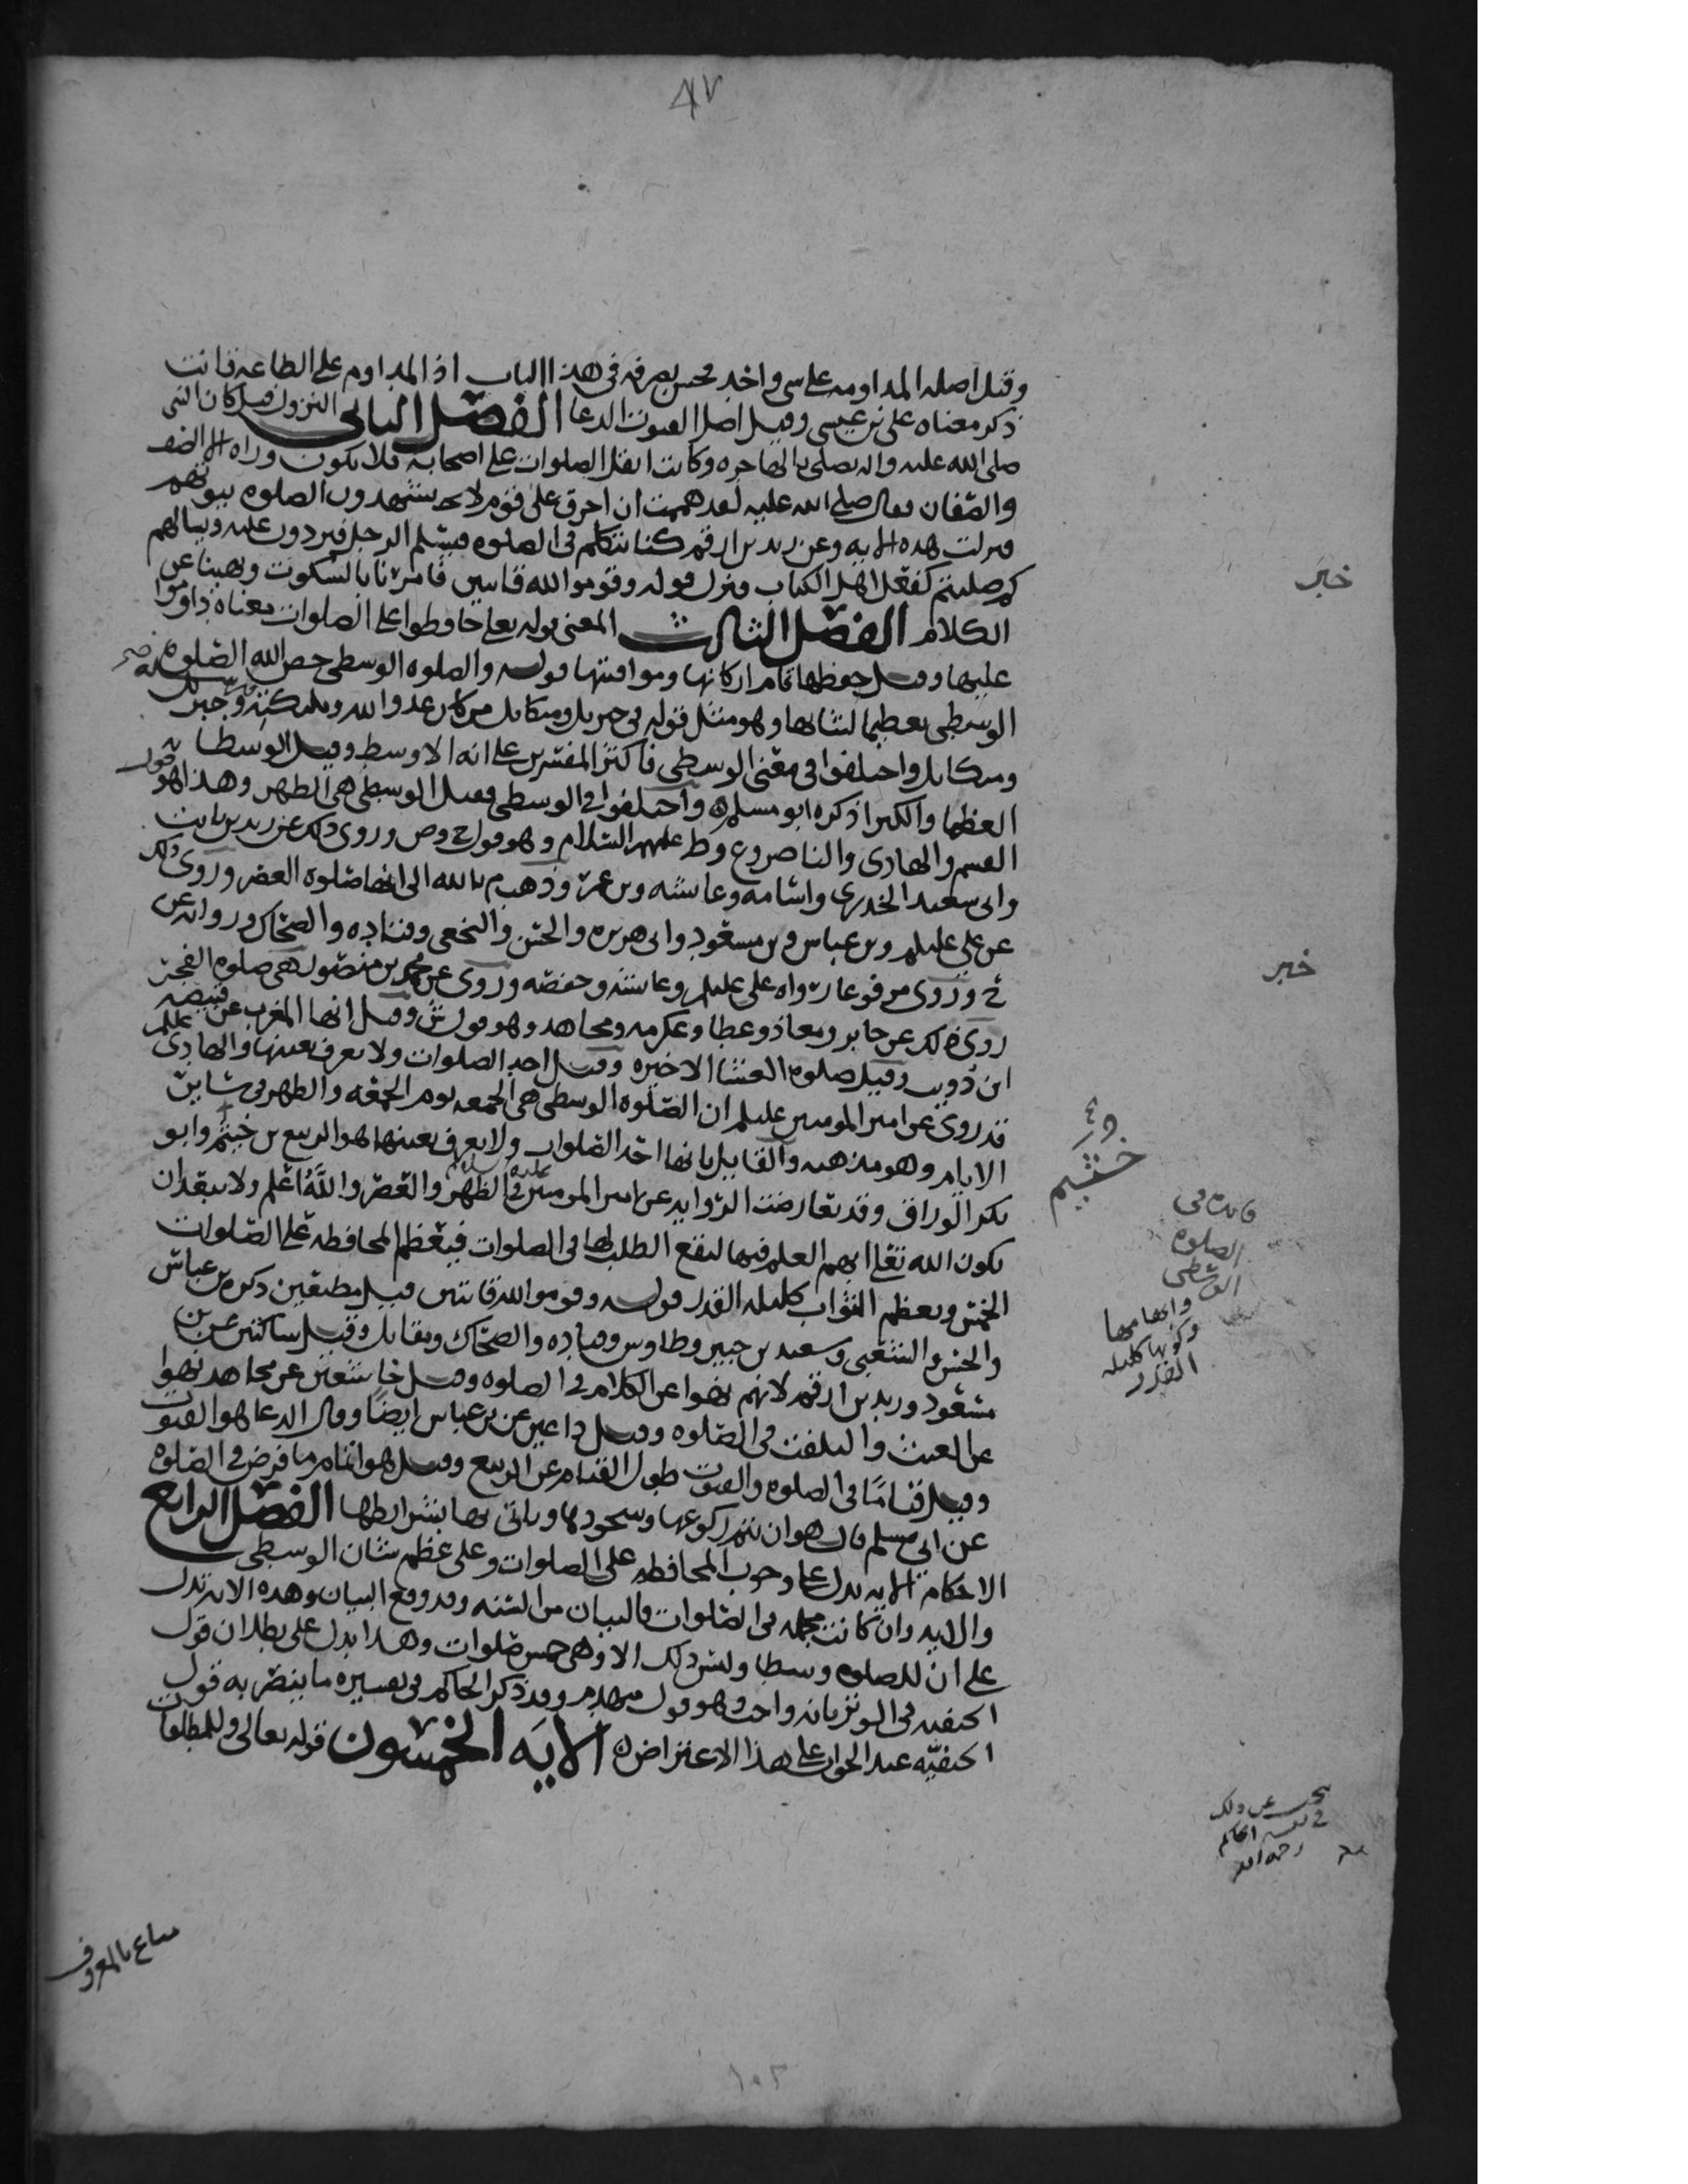 ٨٧
وقيل اصله المداومه على شي واحد فحسن تصرفه في هذا الباب اذ المداوم على الطاعه قانت
ذكر معناه علي بن عيسى وقيل اصل القنوت الدعا الفصل الثاني النزول قيل كان النبي
صلى الله عليه واله يصلي بالهاجره وكانت اثقل الصلوات على اصحابه فلا يكون وراه الا الصف
والصفان فقال صلى الله عليه لقد هممت ان احرق على قوم لا يشهدون الصلوه بيوتهم
فنزلت هذه الايه وعن زيد بن ارقم كنا نتكلم في الصلوه فيسلم الرجل فيردون عليه ويسالهم
كم صليتم كفعل اهل الكتاب فنزل قوله وقوموا لله قانتين فامرنا بالسكوت ونهينا عن
الكلام الفصل الثالث المعنى قوله تعالى حافظوا على الصلوات معناه داوموا
عليها وقيل حفظها تمام اركانها ومواقيتها قوله والصلوه الوسطى خص الله الصلوه
الوسطى تعظيما لشانها وهو مثل قوله في جبريل وميكايل من كان عدوا لله وملئكته ورسله وجبريل
وميكايل واختلفوا في معنى الوسطى فاكثر المفسرين على انه الاوسط وقيل الوسطا
العظما والكبرا ذكره ابو مسلم واختلفوا في الوسطى فقيل الوسطى هي الظهر وهذا هو قول
القسم والهادي والناصر وع وط عليهم السلام وهو قول ح وص وروي ذلك عن زيد بن ثابت
وابي سعيد الخدري واسامه وعايشه وبن عمر وذهب م بالله الى انها صلوه العصر وروي ذلك
عن علي عليلم وبن عباس وبن مسعود وابي هريره والحسن والنخعي وقتاده والضحاك وروايه عن
ح وروي مرفوعا رواه علي عليلم وعايشه وحفصه وروي عن محمد بن منصور هي صلوه الفجر
روي ذلك عن جابر ومعاذ وعطا وعكرمه ومجاهد وهو قول ش وقيل انها المغرب عن قبيصه
ابن ذويب وقيل صلوه العشا الاخيره وقيل احد الصلوات ولا يعرف بعينها والهادي عليلم
قد روى عن امير المومنين عليلم ان الصلوه الوسطى هي الجمعه يوم الجمعه والظهر في ساير
الايام وهو مذهبه والقايل بانها احد الصلوات ولا يعرف بعينها هو الربيع بن خيثم وابو
بكر الوراق وقد تعارضت الروايه عن امير المومنين عليه السلام في الظهر والعصر والله اعلم ولا يبعد ان
يكون الله تعالى ابهم العلم فيها ليقع الطلب لها في الصلوات فيعظم المحافظه على الصلوات
الخمس ويعظم الثواب كليله القدر قوله وقوموا لله قانتين قيل مطيعين ذكره بن عباس
والحسن والشعبي وسعيد بن جبير وطاوس وقتاده والضحاك ومقاتل وقيل ساكتين عن بن
مسعود وزيد بن ارقم لانهم نهوا عن الكلام في الصلوه وقيل خاشعين عن مجاهد نهوا
عن العبث والتلفت في الصلوه وقيل داعين عن بن عباس ايضا وقال الدعا هو القنوت
وقيل قياما في الصلوه والقنوت طول القيام عن الربيع وقيل هو اتمام ما فرض في الصلوه
عن ابي مسلم قال هو ان يتم ركوعها وسجودها وياتي بها بشرايطها الفصل الرابع
الاحكام الايه تدل على وجوب المحافظه على الصلوات وعلى عظم شان الوسطى
والايه وان كانت مجمله في الصلوات فالبيان من السنه وقد وقع البيان وهذه الايه تدل
على ان للصلوه وسطا وليس ذلك الا وهي خمس صلوات وهذا يدل على بطلان قول
الحنفيه في الوتر بانه واجب وهو قول متقدم وقد ذكر الحاكم في تفسيره ما ينصر به قول
الحنفيه عند الجواب على هذا الاعتراض ه الايه الخمسون قوله تعالى وللمطلقات
خبر
خبر
خثيم
فايده في
الصلوه
الوسطى
وابهامها
وكونها كليله
القدر
عن ذلك
الحاكم
رحمه الله
متاع بالمعروف
١٠٢